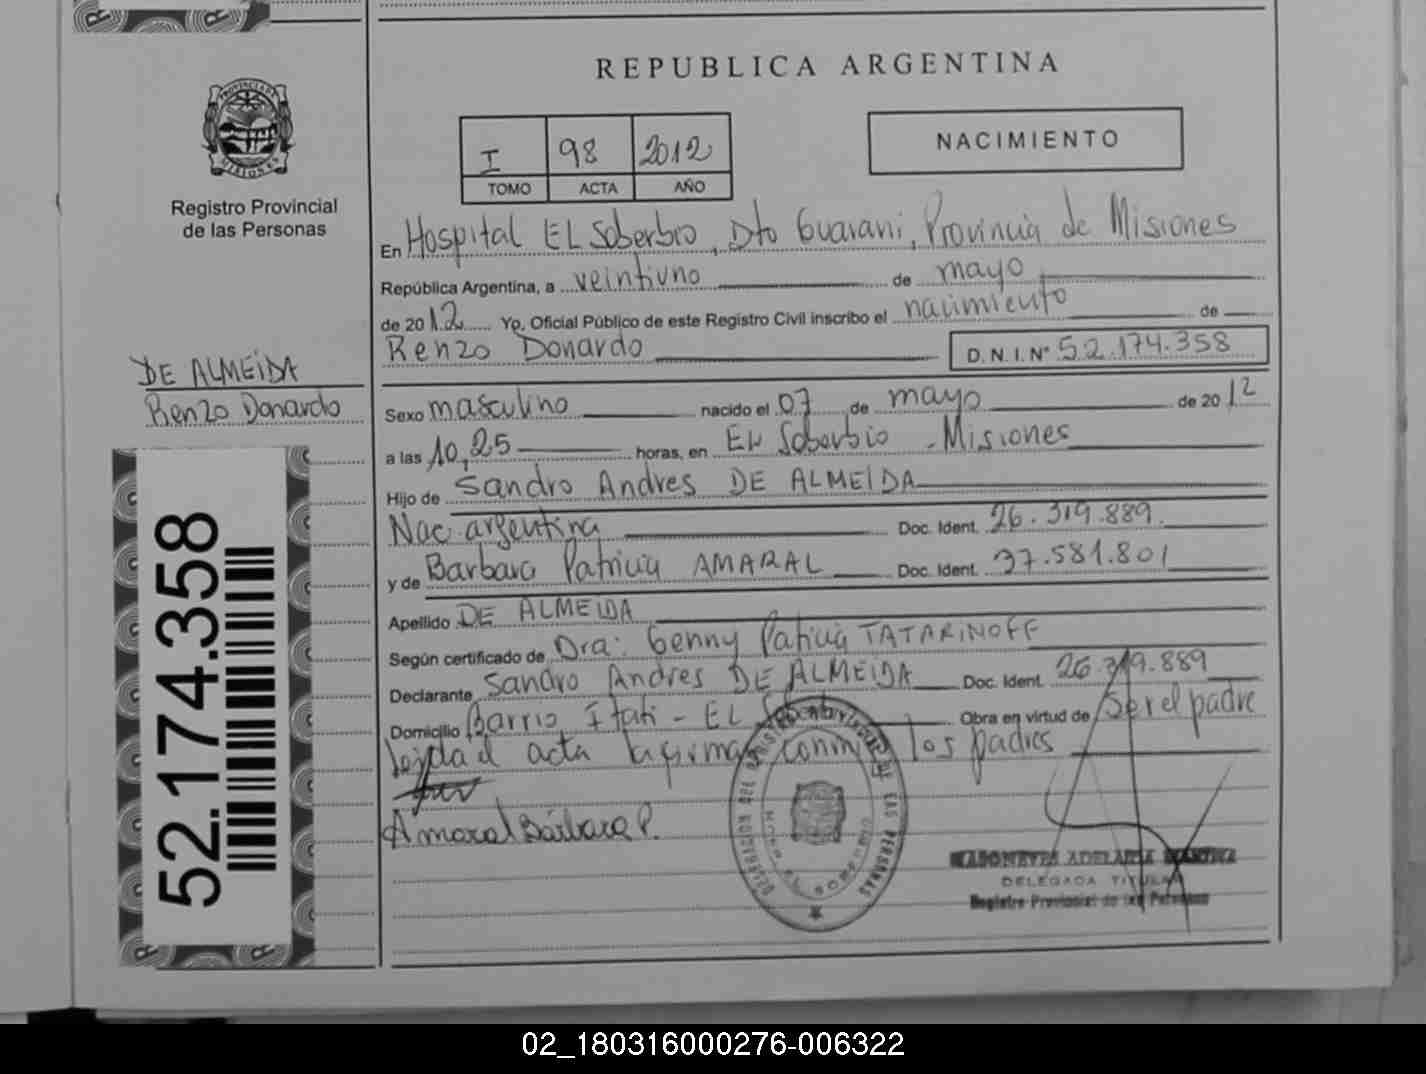 REPUBLICA ARGENTINA
PROVINCIA DE MISIONES
Registro Provincial
de las Personas
I 98 2012
TOMO ACTA AÑO
NACIMIENTO
En Hospital EL Soberbio, Dto Guarani, Provincia de Misiones
República Argentina, a veintiuno de mayo
de 2012 Yo, Oficial Público de este Registro Civil inscribo el nacimiento de
Renzo Donardo D.N.I.Nº 52.174.358
DE ALMEIDA
Renzo Donardo
Sexo masculino nacido el 07 de mayo de 2012
a las 10,25 horas, en EL Soberbio - Misiones
Hijo de Sandro Andres DE ALMEIDA
Nac. argentina Doc. Ident. 26.319.889.
y de Barbara Patricia AMARAL Doc. Ident. 37.581.801
Apellido DE ALMEIDA
Según certificado de Dra: Genny Patricia TATARINOFF
Declarante Sandro Andres DE ALMEIDA Doc. Ident. 26.319.889
Domicilio Barrio Itati - EL Obra en virtud de ser el padre
acta la firma los padres
Amaral Bárbara P.
52.174.358
DELEGADA TITULAR
Registro Provincial de las Personas
02_180316000276-006322